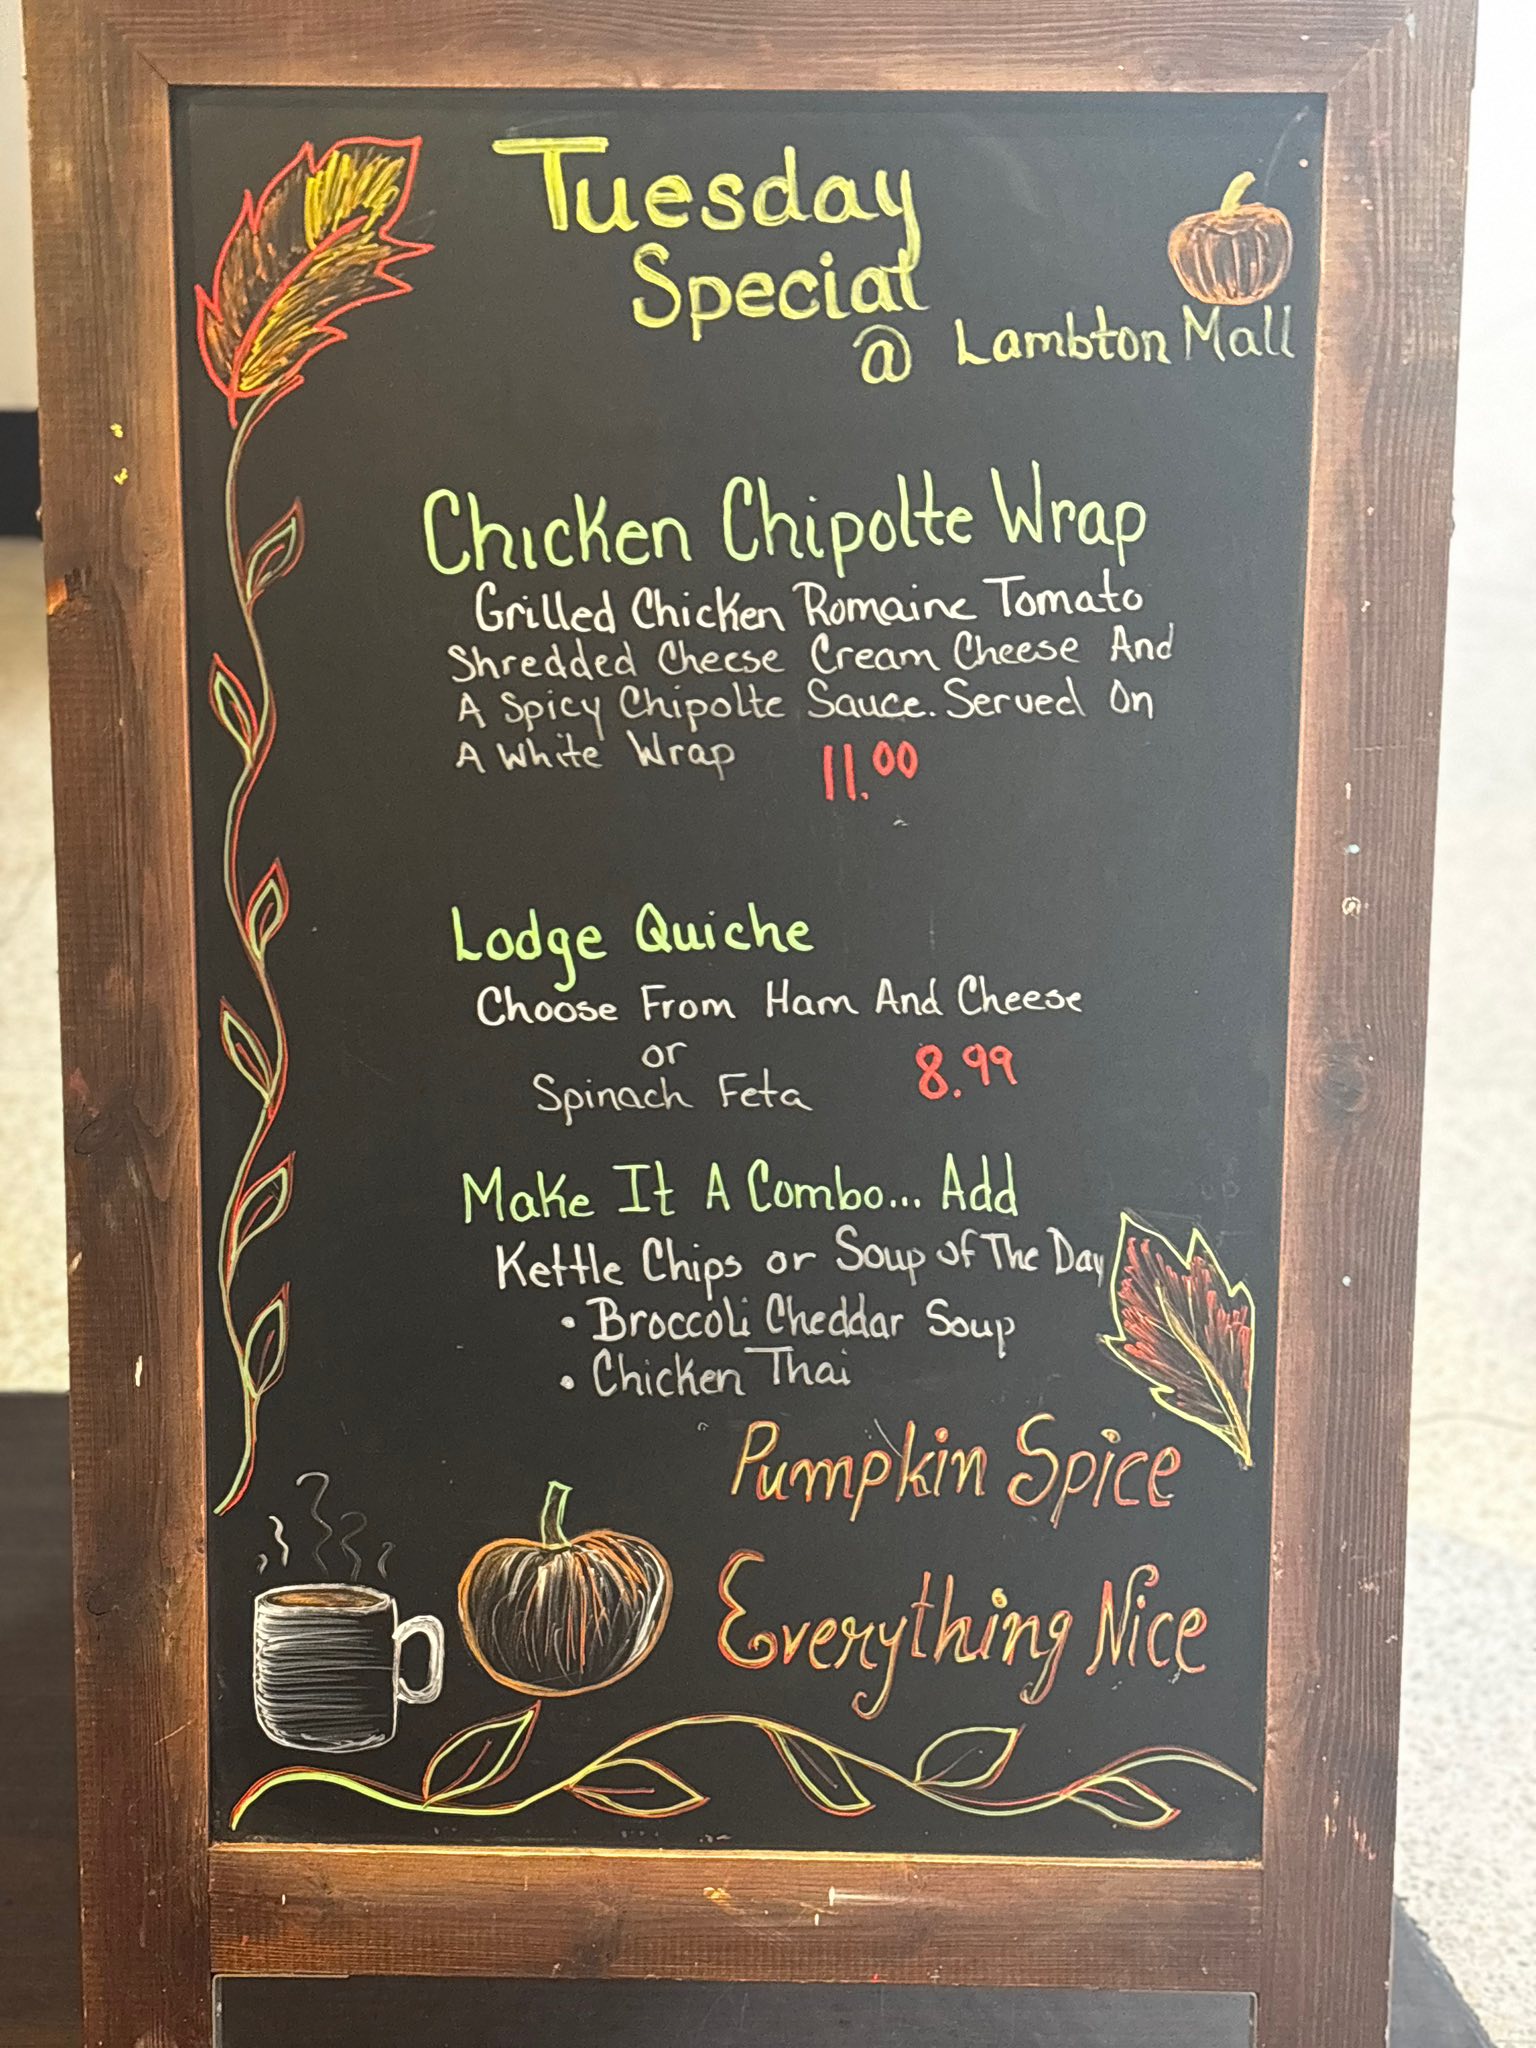 Tuesday
Special
@ Lambton Mall
Chicken Chipolte Wrap
Grilled Chicken Romaine Tomato
Shredded Cheese Cream Cheese And
A Spicy Chipolte Sauce. Served On
A White Wrap 11.00
Lodge Quiche
Choose From Ham And Cheese
or
Spinach Feta 8.99
Make It A Combo... Add
Kettle Chips or Soup of The Day
• Broccoli Cheddar Soup
• Chicken Thai
Pumpkin Spice
Everything Nice